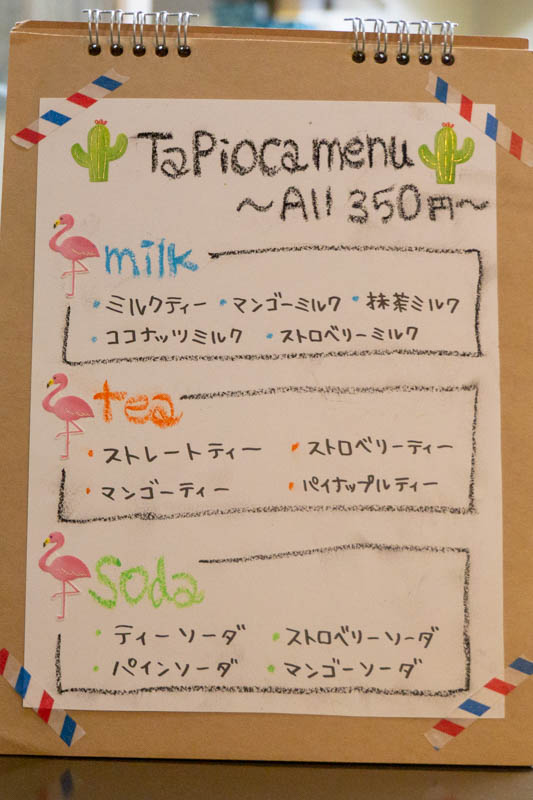 Tapioca menu
～All 350円～
milk
・ミルクティー ・マンゴーミルク ・抹茶ミルク
・ココナッツミルク ・ストロベリーミルク
tea
・ストレートティー ・ストロベリーティー
・マンゴーティー ・パイナップルティー
Soda
・ティーソーダ ・ストロベリーソーダ
・パインソーダ ・マンゴーソーダ